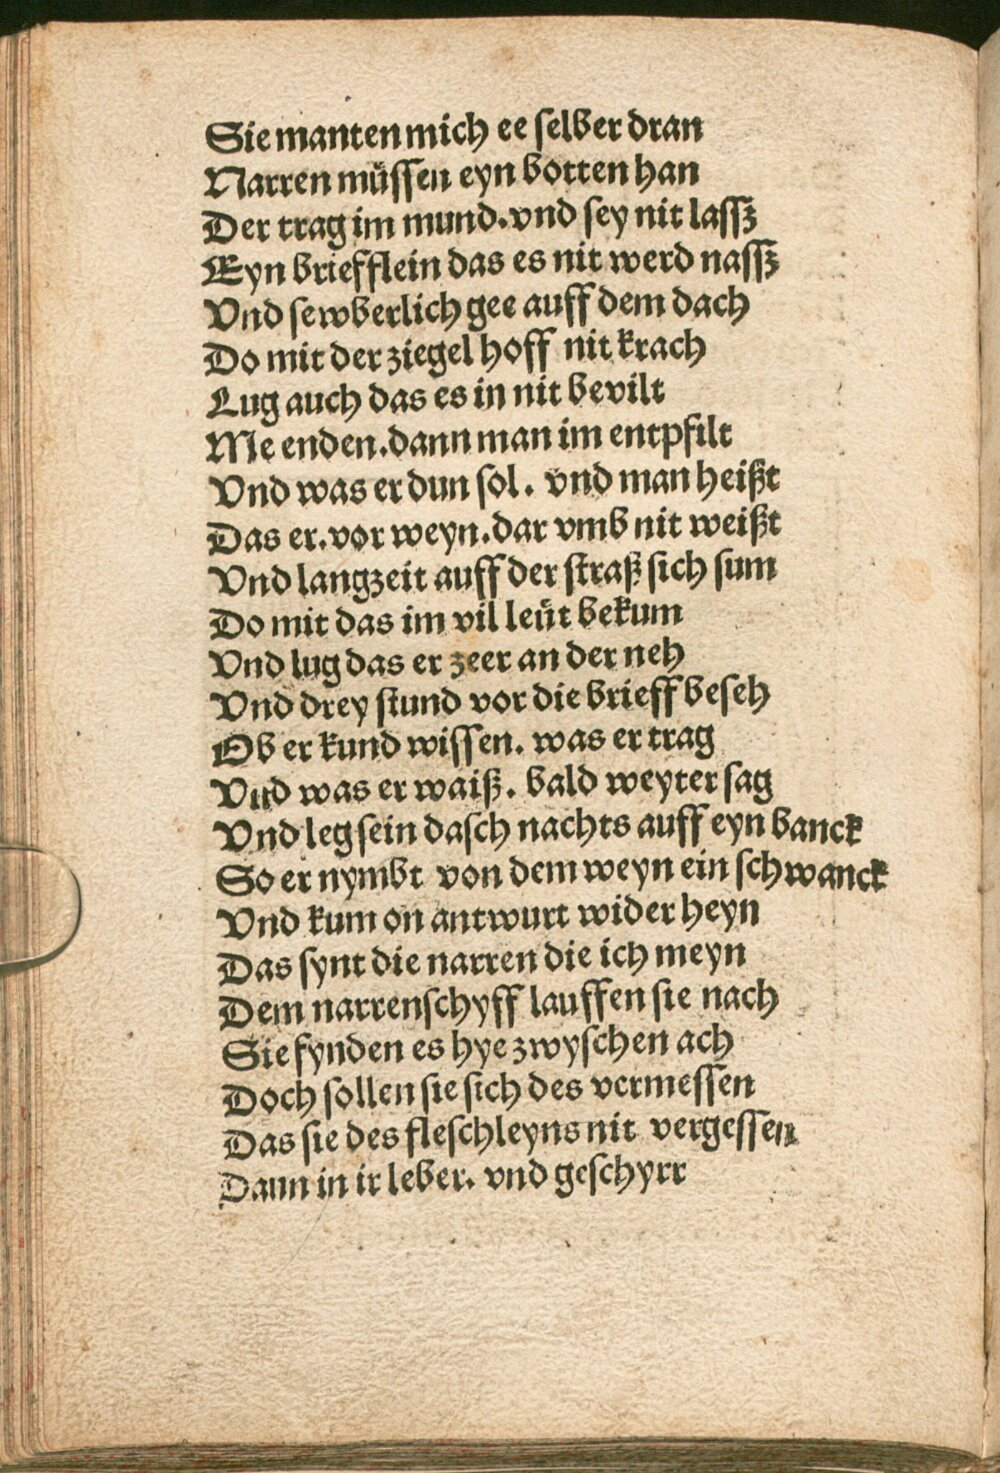 Sie manten mich ee ſelber dran
Narren müſſen eyn botten han
Der trag im mund. vnd ſey nit laſſz
Eyn briefflein das es nit werd naſſz
Vnd ſewberlich gee auff dem dach
Do mit der ziegel hoff nit krach
Lug auch das es in nit bevilt
Me enden. dann man im entpfilt
Vnd was er dun ſol. vnd man heißt
Das er. vor weyn. dar vmb nit weißt
Vnd langzeit auff der ſtraß ſich ſum
Do mit das im vil leüt bekum
Vnd lug das er zeer an der neh
Vnd drey ſtund vor die brieff beſeh
Ob er kund wiſſen. was er trag
Vnd was er waiß. bald weyter ſag
Vnd leg ſein daſch nachts auff eyn banck
So er nymbt von dem weyn ein ſchwanck
Vnd kum on antwurt wider heyn
Das ſynt die narren die ich meyn
Dem narrenſchyff lauffen ſie nach
Sie fynden es hye zwyſchen ach
Doch ſollen ſie ſich des vermeſſen
Das ſie des fleſchleyns nit vergeſſen
Dann in ir leber. vnd geſchyrr